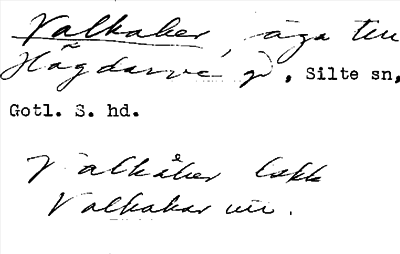 Valkaker, äga till
Högdarve gd, Silte sn,
Gotl. S. hd.
Valkåker
Valkakar